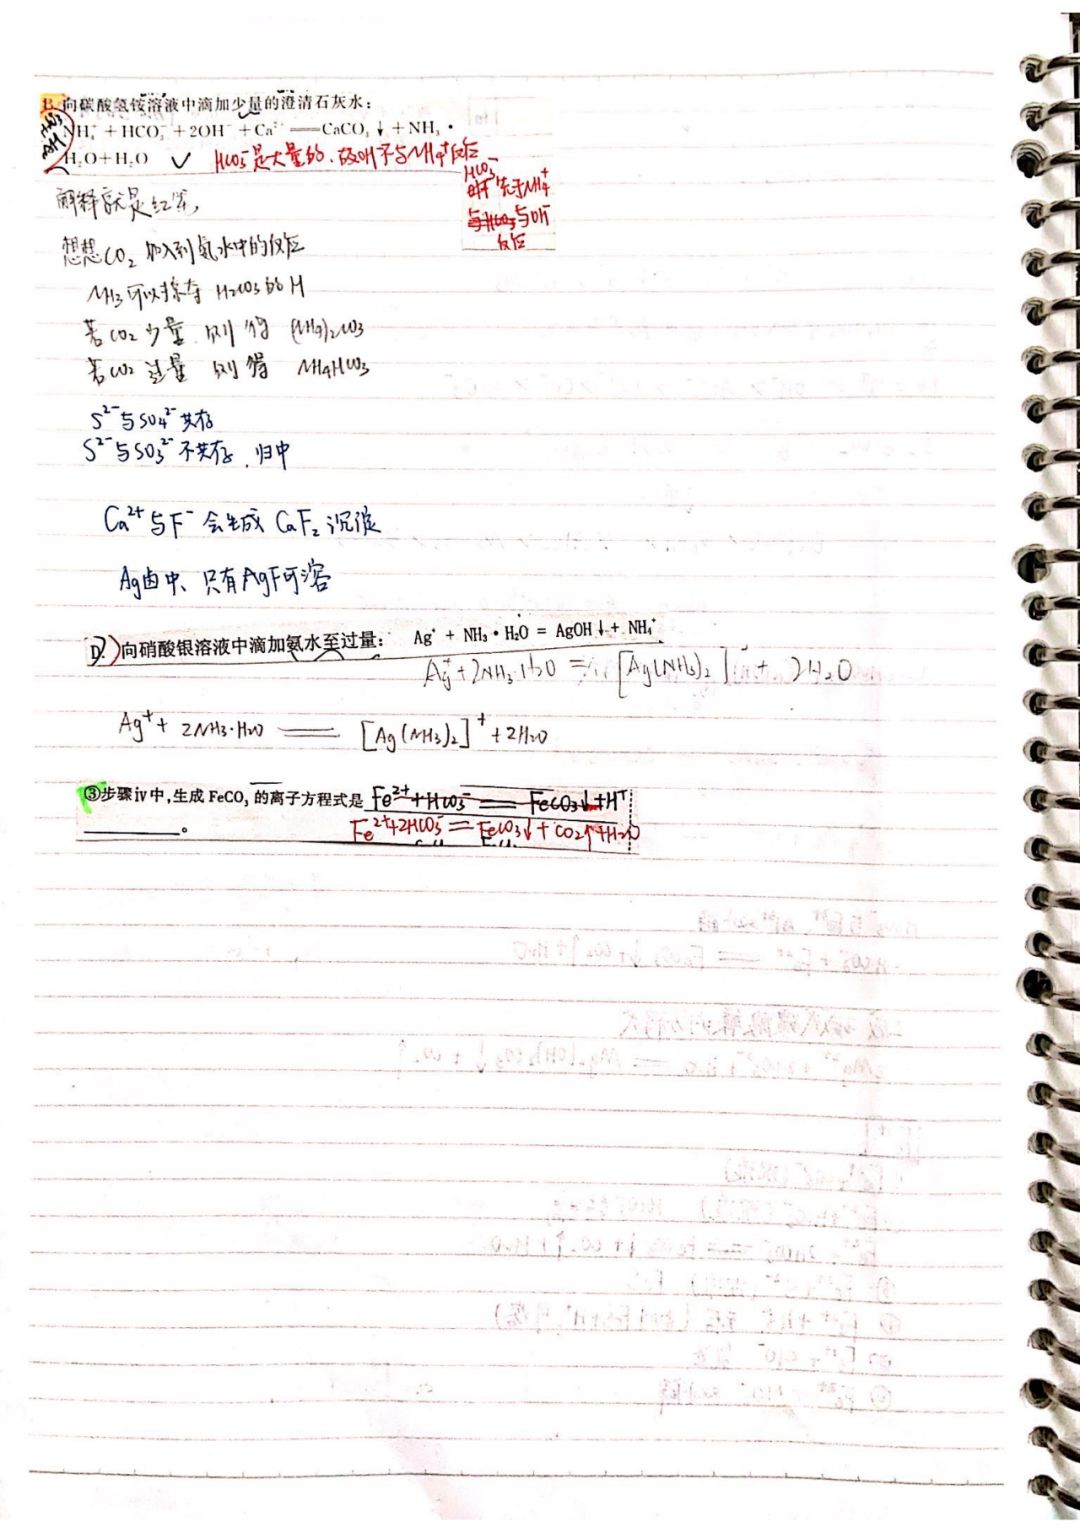 B. 向碳酸氢铵溶液中滴加少量的澄清石灰水：
NH₄⁺ + HCO₃⁻ + 2OH⁻ + Ca²⁺ ══ CaCO₃↓ + NH₃·
H₂O + H₂O ✓ HCO₃⁻是大量的，故OH⁻不与NH₄⁺反应
HCO₃⁻
先于NH₄⁺
与OH⁻
反应
解释就是红笔，
想想CO₂加入到氨水中的反应
NH₃可以掠夺H₂CO₃的H
若CO₂少量 则得 (NH₄)₂CO₃
若CO₂过量 则得 NH₄HCO₃
S²⁻与SO₄²⁻共存
S²⁻与SO₃²⁻不共存，归中
Ca²⁺与F⁻会生成CaF₂沉淀
Ag卤中、只有AgF可溶
D. 向硝酸银溶液中滴加氨水至过量： Ag⁺ + NH₃·H₂O = AgOH↓ + NH₄⁺
Ag⁺+2NH₃·H₂O = [Ag(NH₃)₂]⁺ + 2H₂O
Ag⁺ + 2NH₃·H₂O ══ [Ag(NH₃)₂]⁺ + 2H₂O
③步骤iv中，生成FeCO₃的离子方程式是 Fe²⁺+HCO₃⁻ ══ FeCO₃↓+H⁺
________。 Fe²⁺+2HCO₃⁻ = FeCO₃↓ + CO₂↑ + H₂O